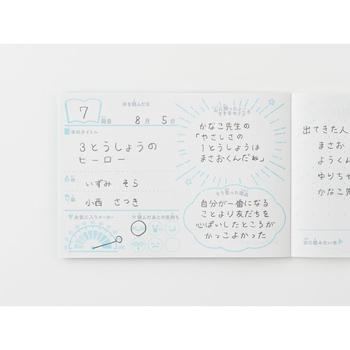 7
冊目
本を読んだ日
8月5日
本のタイトル
3とうしょうの
ヒーロー
いずみ そら
小西 さつき
お気に入りメーター
読んだあとの気持ち
かなこ先生の
「やさしさの
1とうしょうは
まさおくんだね」
そう思った理由
自分が一番になる
ことより友だちを
心ぱいしたところが
かっこよかった
出てきた人
まさお
ようくん
ゆりちゃ
かなこ先